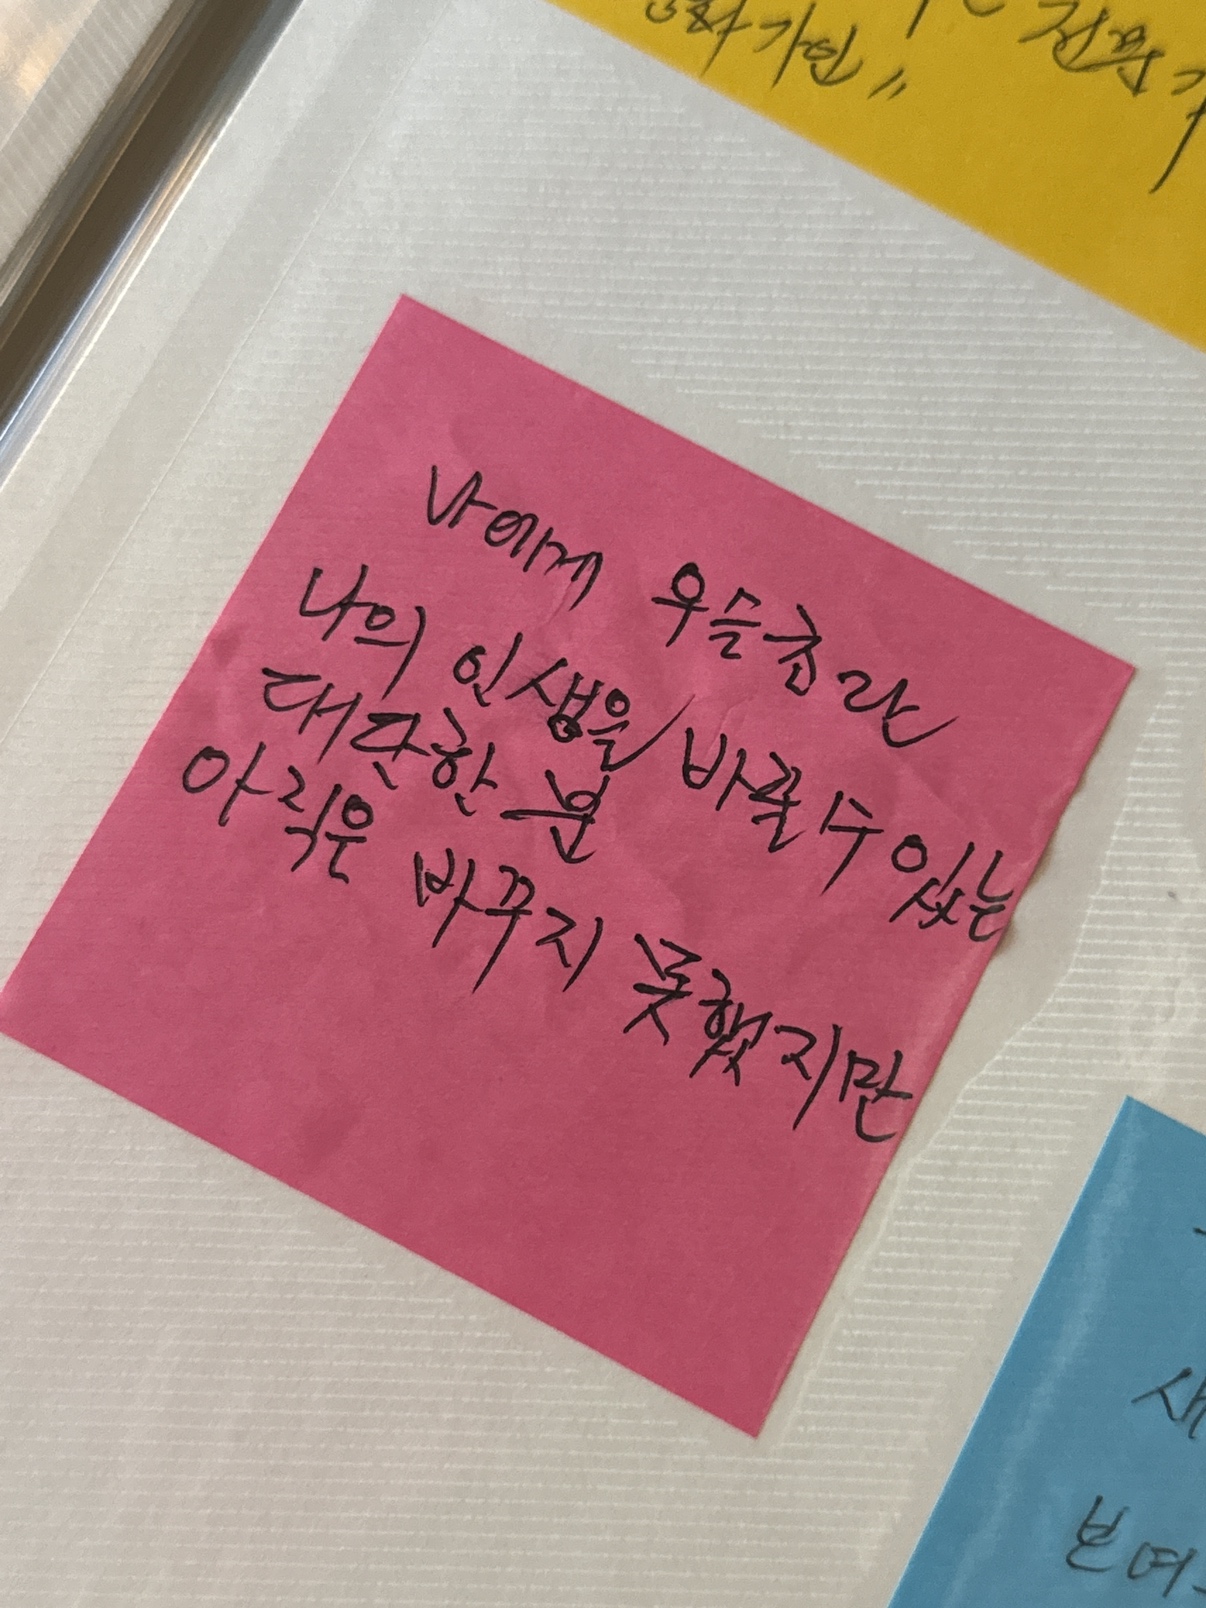 화가인"
전문가
나에게 우듬초란
나의 인생을 바꿀 수 있는
대단한 분
아직은 바꾸지 못했지만
새
보며